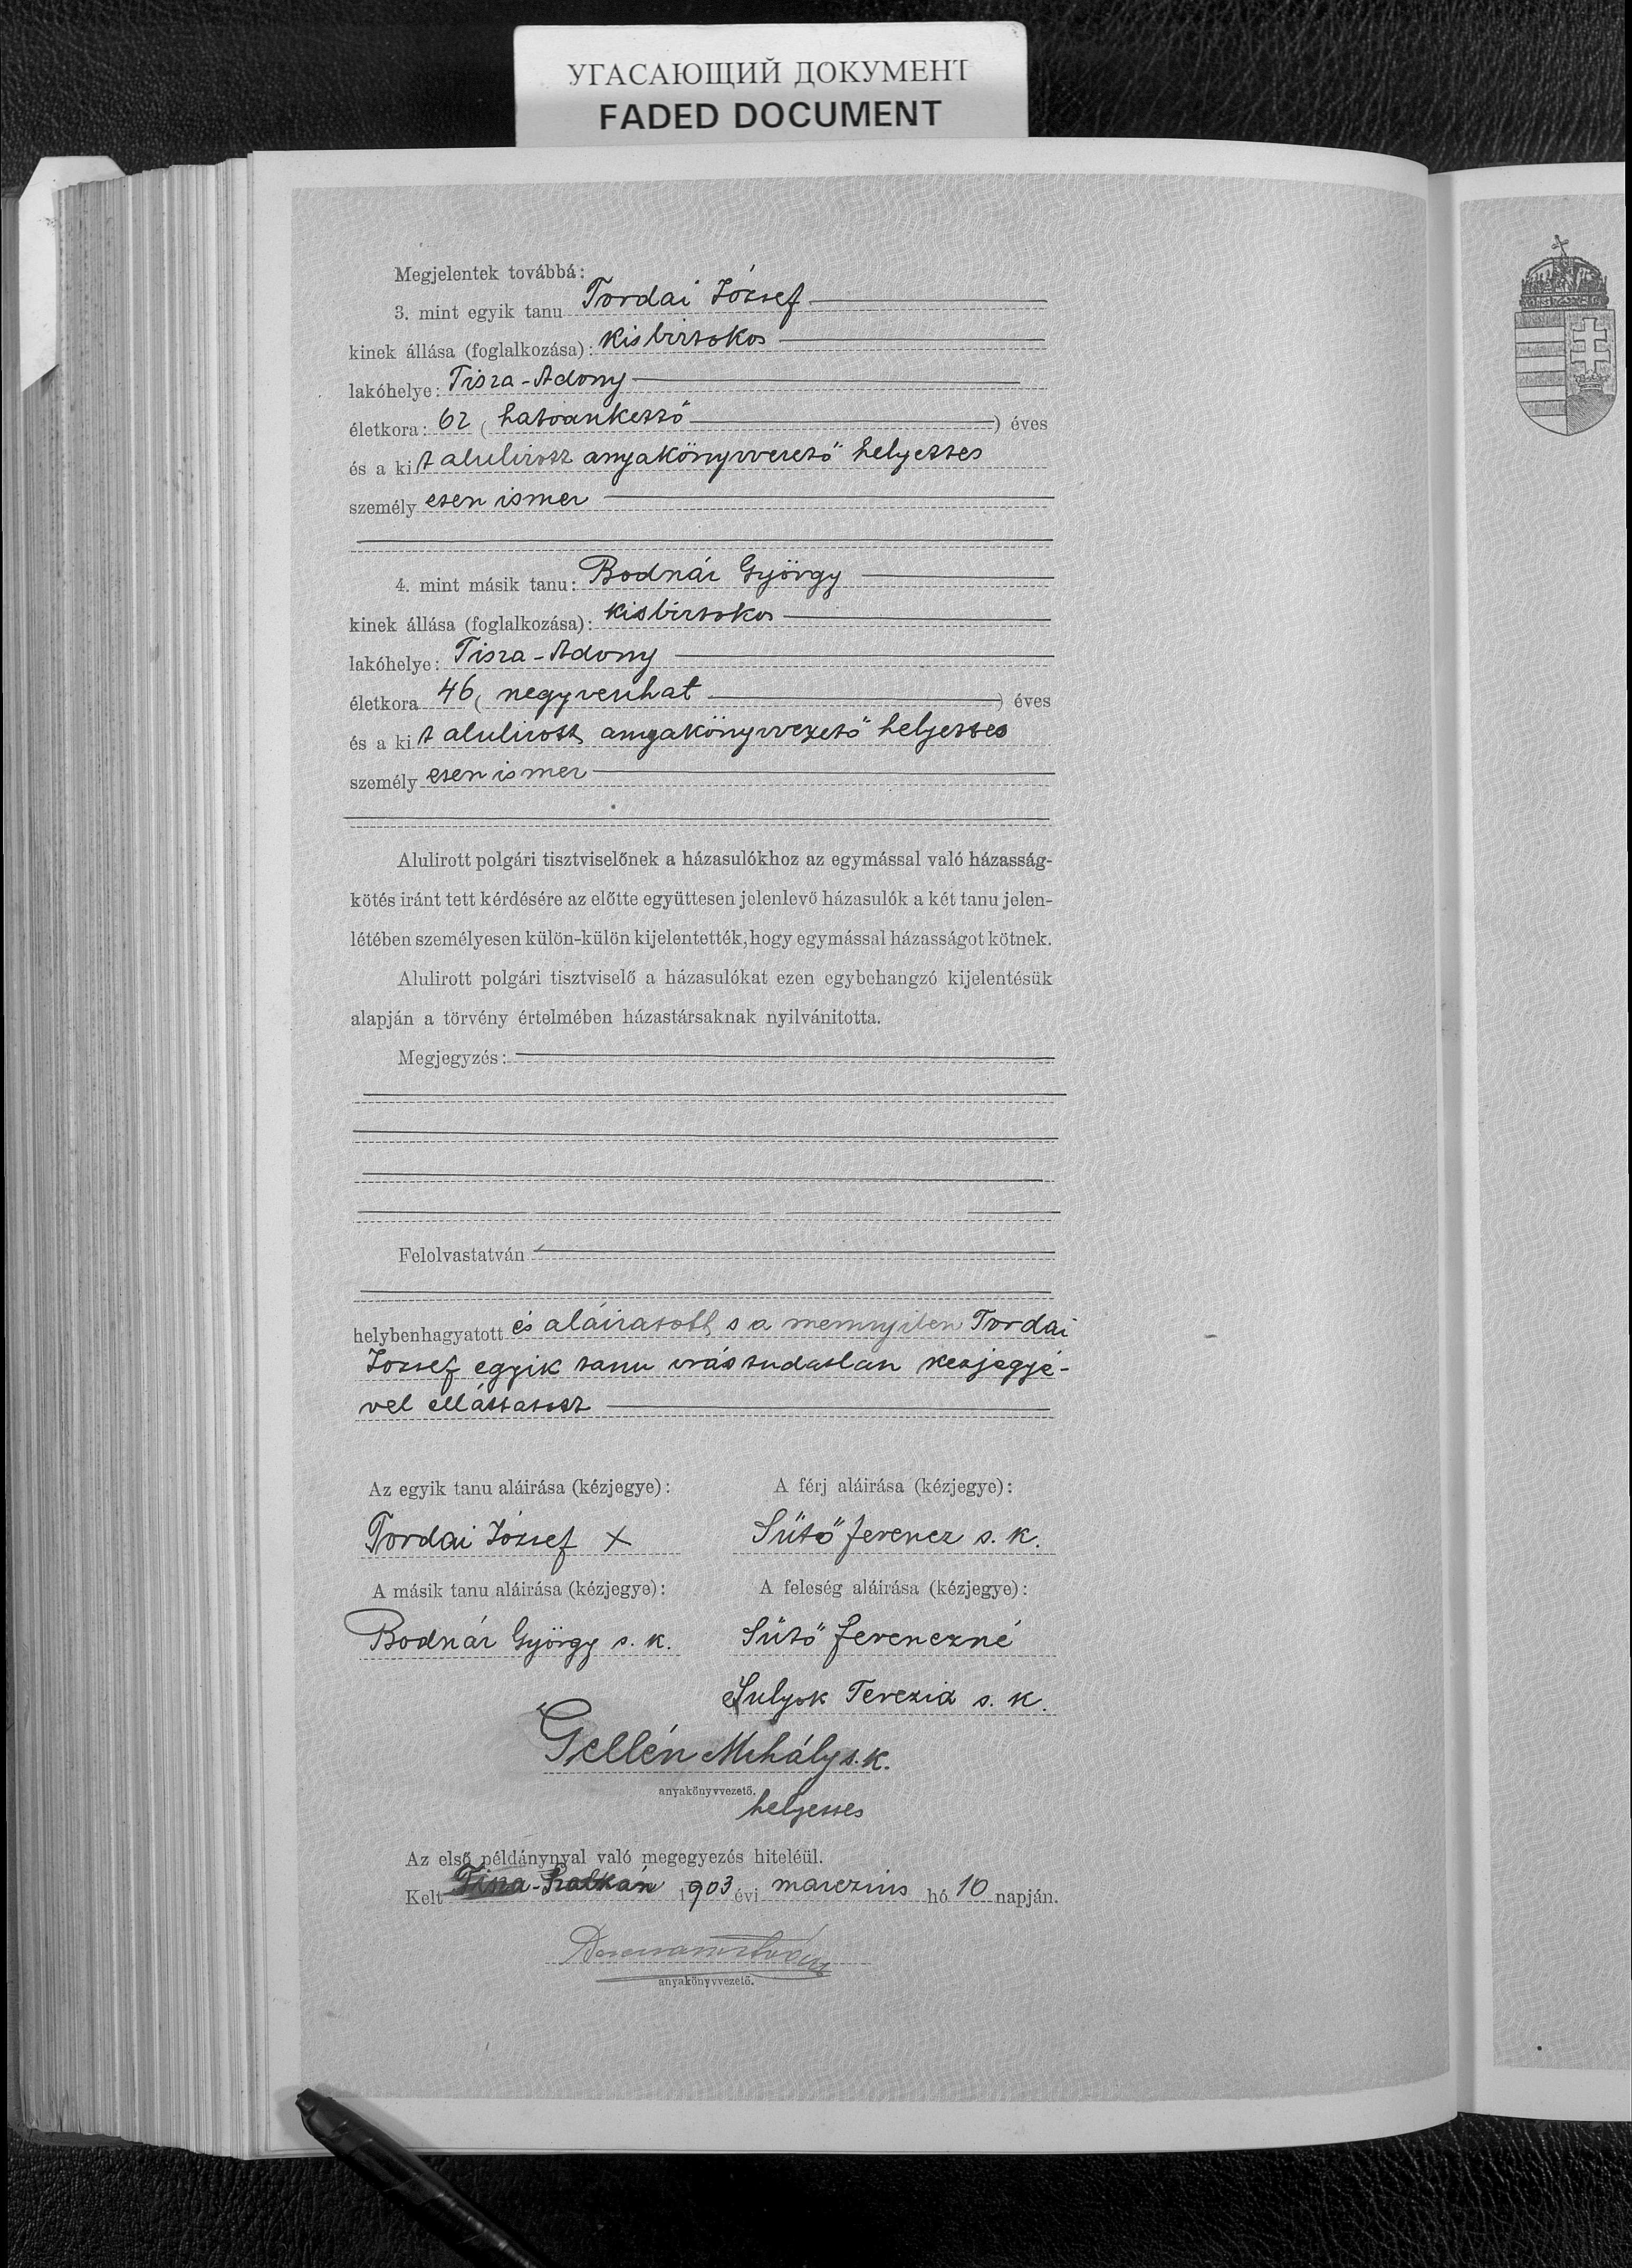 УГАСАЮЩИЙ ДОКУМЕНТ
FADED DOCUMENT
Megjelentek továbbá:
3. mint egyik tanu Tordai József
kinek állása (foglalkozása): kisbirtokos
lakóhelye: Tisza-Adony
életkora: 62 (hatvankettő) éves
és a kit alulirott anyakönyvvezető helyettes
személyesen ismer
4. mint másik tanu: Bodnár György
kinek állása (foglalkozása): kisbirtokos
lakóhelye: Tisza-Adony
életkora 46 (negyvenhat) éves
és a kit alulirott anyakönyvvezető helyettes
személyesen ismer
Alulirott polgári tisztviselőnek a házasulókhoz az egymással való házasság-
kötés iránt tett kérdésére az előtte együttesen jelenlevő házasulók a két tanu jelen-
létében személyesen külön-külön kijelentették, hogy egymással házasságot kötnek.
Alulirott polgári tisztviselő a házasulókat ezen egybehangzó kijelentésük
alapján a törvény értelmében házastársaknak nyilvánitotta.
Megjegyzés:
Felolvastatván
helybenhagyatott és aláiratott s a mennyiben Tordai
József egyik tanu irástudatlan kézjegyé-
vel elláttatott
Az egyik tanu aláirása (kézjegye): A férj aláirása (kézjegye):
Tordai József x Sütő Ferencz s. k.
A másik tanu aláirása (kézjegye): A feleség aláirása (kézjegye):
Bodnár György s. k. Sütő Ferenczné
Sulyok Terézia s. k.
Gellén Mihály s. k.
anyakönyvvezető.
helyettes
Az első példánynyal való megegyezés hiteléül.
Kelt Tisza- 1903 évi marczius hó 10 napján.
anyakönyvvezető.